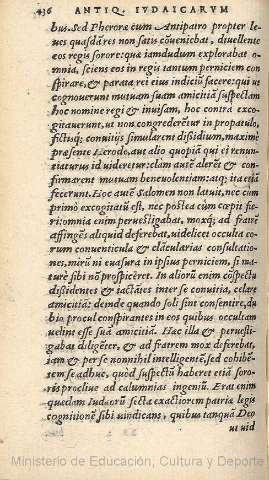 436 ANTIQ. IVDAICARVM
bus. Sed Pheroræ cum Antipatro propter le-
ues quasdã res non satis cõueniebat, diuellente
eos regis sorore: quæ iamdudum explorabat o-
mnia, sciens eos in regis tantum perniciem con
spirare, & parata rei eius indiciũ facere: qui ut
cognouerunt mutuam suam amicitiã suspectam
hoc nomine regi & inuisam, hoc contra exco-
gitauerunt, ut non congrederẽtur in propatulo,
fictisq; conuitijs simularent dißidium, maximè
præsente Herode, aut alio quopiã qui ei renun-
tiaturus id uideretur: clam autẽ alerẽt & con-
firmarent mutuam beneuolentiam: atq; ita etiã
fecerunt. Hoc autẽ Salomen non latuit, nec cùm
primò excogitatũ est, nec postea cùm cœpit fie-
ri: omnia enim peruestigabat, moxq; ad fratrẽ
affingẽs aliquid deferebat, uidelicet occulta eo-
rum conuenticula & clãcularias consultatio-
nes, mirũ ni euasura in ipsius perniciem, si ma-
turè sibi nõ prospiceret. In aliorũ enim cõspectu
dißidentes & iactãtes inter se conuitia, celare
amicitiã: deinde quando soli sint consentire, du-
bio procul conspirantes in eos quibus occultam
uelint esse suã amicitiã. Hæc illa & peruesti-
gabat diligẽter, & ad fratrem mox deferebat,
iam & per se nonnihil intelligentẽ, sed cohibẽ-
tem se adhuc, quòd suspectũ haberet etiã soro-
ris procliue ad calumnias ingeniũ. Erat enim
quædam Iudæorũ secta exactiorem patriæ legis
cognitionẽ sibi uindicans, quibus tanquã Deo
ui uid
Ministerio de Educación, Cultura y Deporte